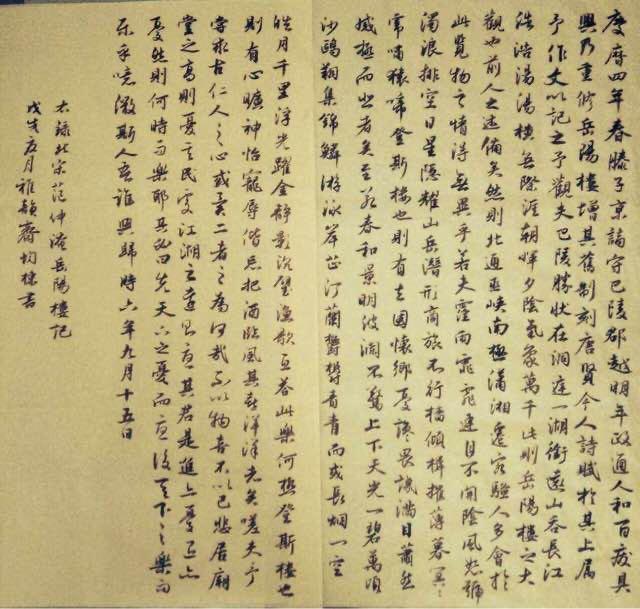 慶曆四年春滕子京謫守巴陵郡越明年政通人和百廢具
興乃重修岳陽樓增其舊制刻唐賢今人詩賦於其上屬
予作文以記之予觀夫巴陵勝狀在洞庭一湖銜遠山吞長江
浩浩湯湯橫無際涯朝暉夕陰氣象萬千此則岳陽樓之大
觀也前人之述備矣然則北通巫峽南極瀟湘遷客騷人多會於
此覽物之情得無異乎若夫霪雨霏霏連月不開陰風怒號
濁浪排空日星隱耀山岳潛形商旅不行檣傾楫摧薄暮冥冥
嘯猿啼登斯樓也則有去國懷鄉憂讒畏譏滿目蕭然
感極而悲者矣至若春和景明波瀾不驚上下天光一碧萬頃
沙鷗翔集錦鱗游泳岸芷汀蘭鬱鬱青青而或長烟一空
皓月千里浮光躍金靜影沉璧漁歌互答此樂何極登斯樓也
則有心曠神怡寵辱偕忘把酒臨風其喜洋洋者矣嗟夫予
嘗求古仁人之心或異二者之為何哉不以物喜不以己悲居廟
堂之高則憂其民處江湖之遠則憂其君是進亦憂退亦
憂然則何時而樂耶其必曰先天下之憂而憂後天下之樂而
樂乎噫微斯人吾誰與歸時六年九月十五日
錄北宋范仲淹岳陽樓記
戊戌夏月雅韻齋均棟書